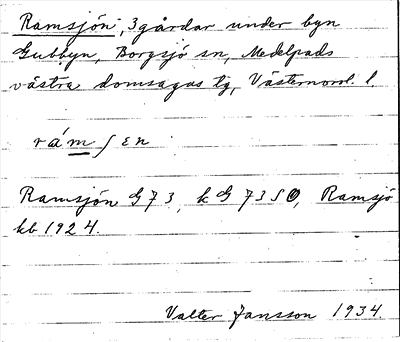 Ramsjön, 3 gårdar under byn
Gubbyn, Borgsjö sn, Medelpads
västra domsagas tg, Västernorrl. l.
rám ʃ ɛn
Ramsjön G 73, k G 73 S O, Ramsjö
kb 1924.
Valter Jansson 1934.